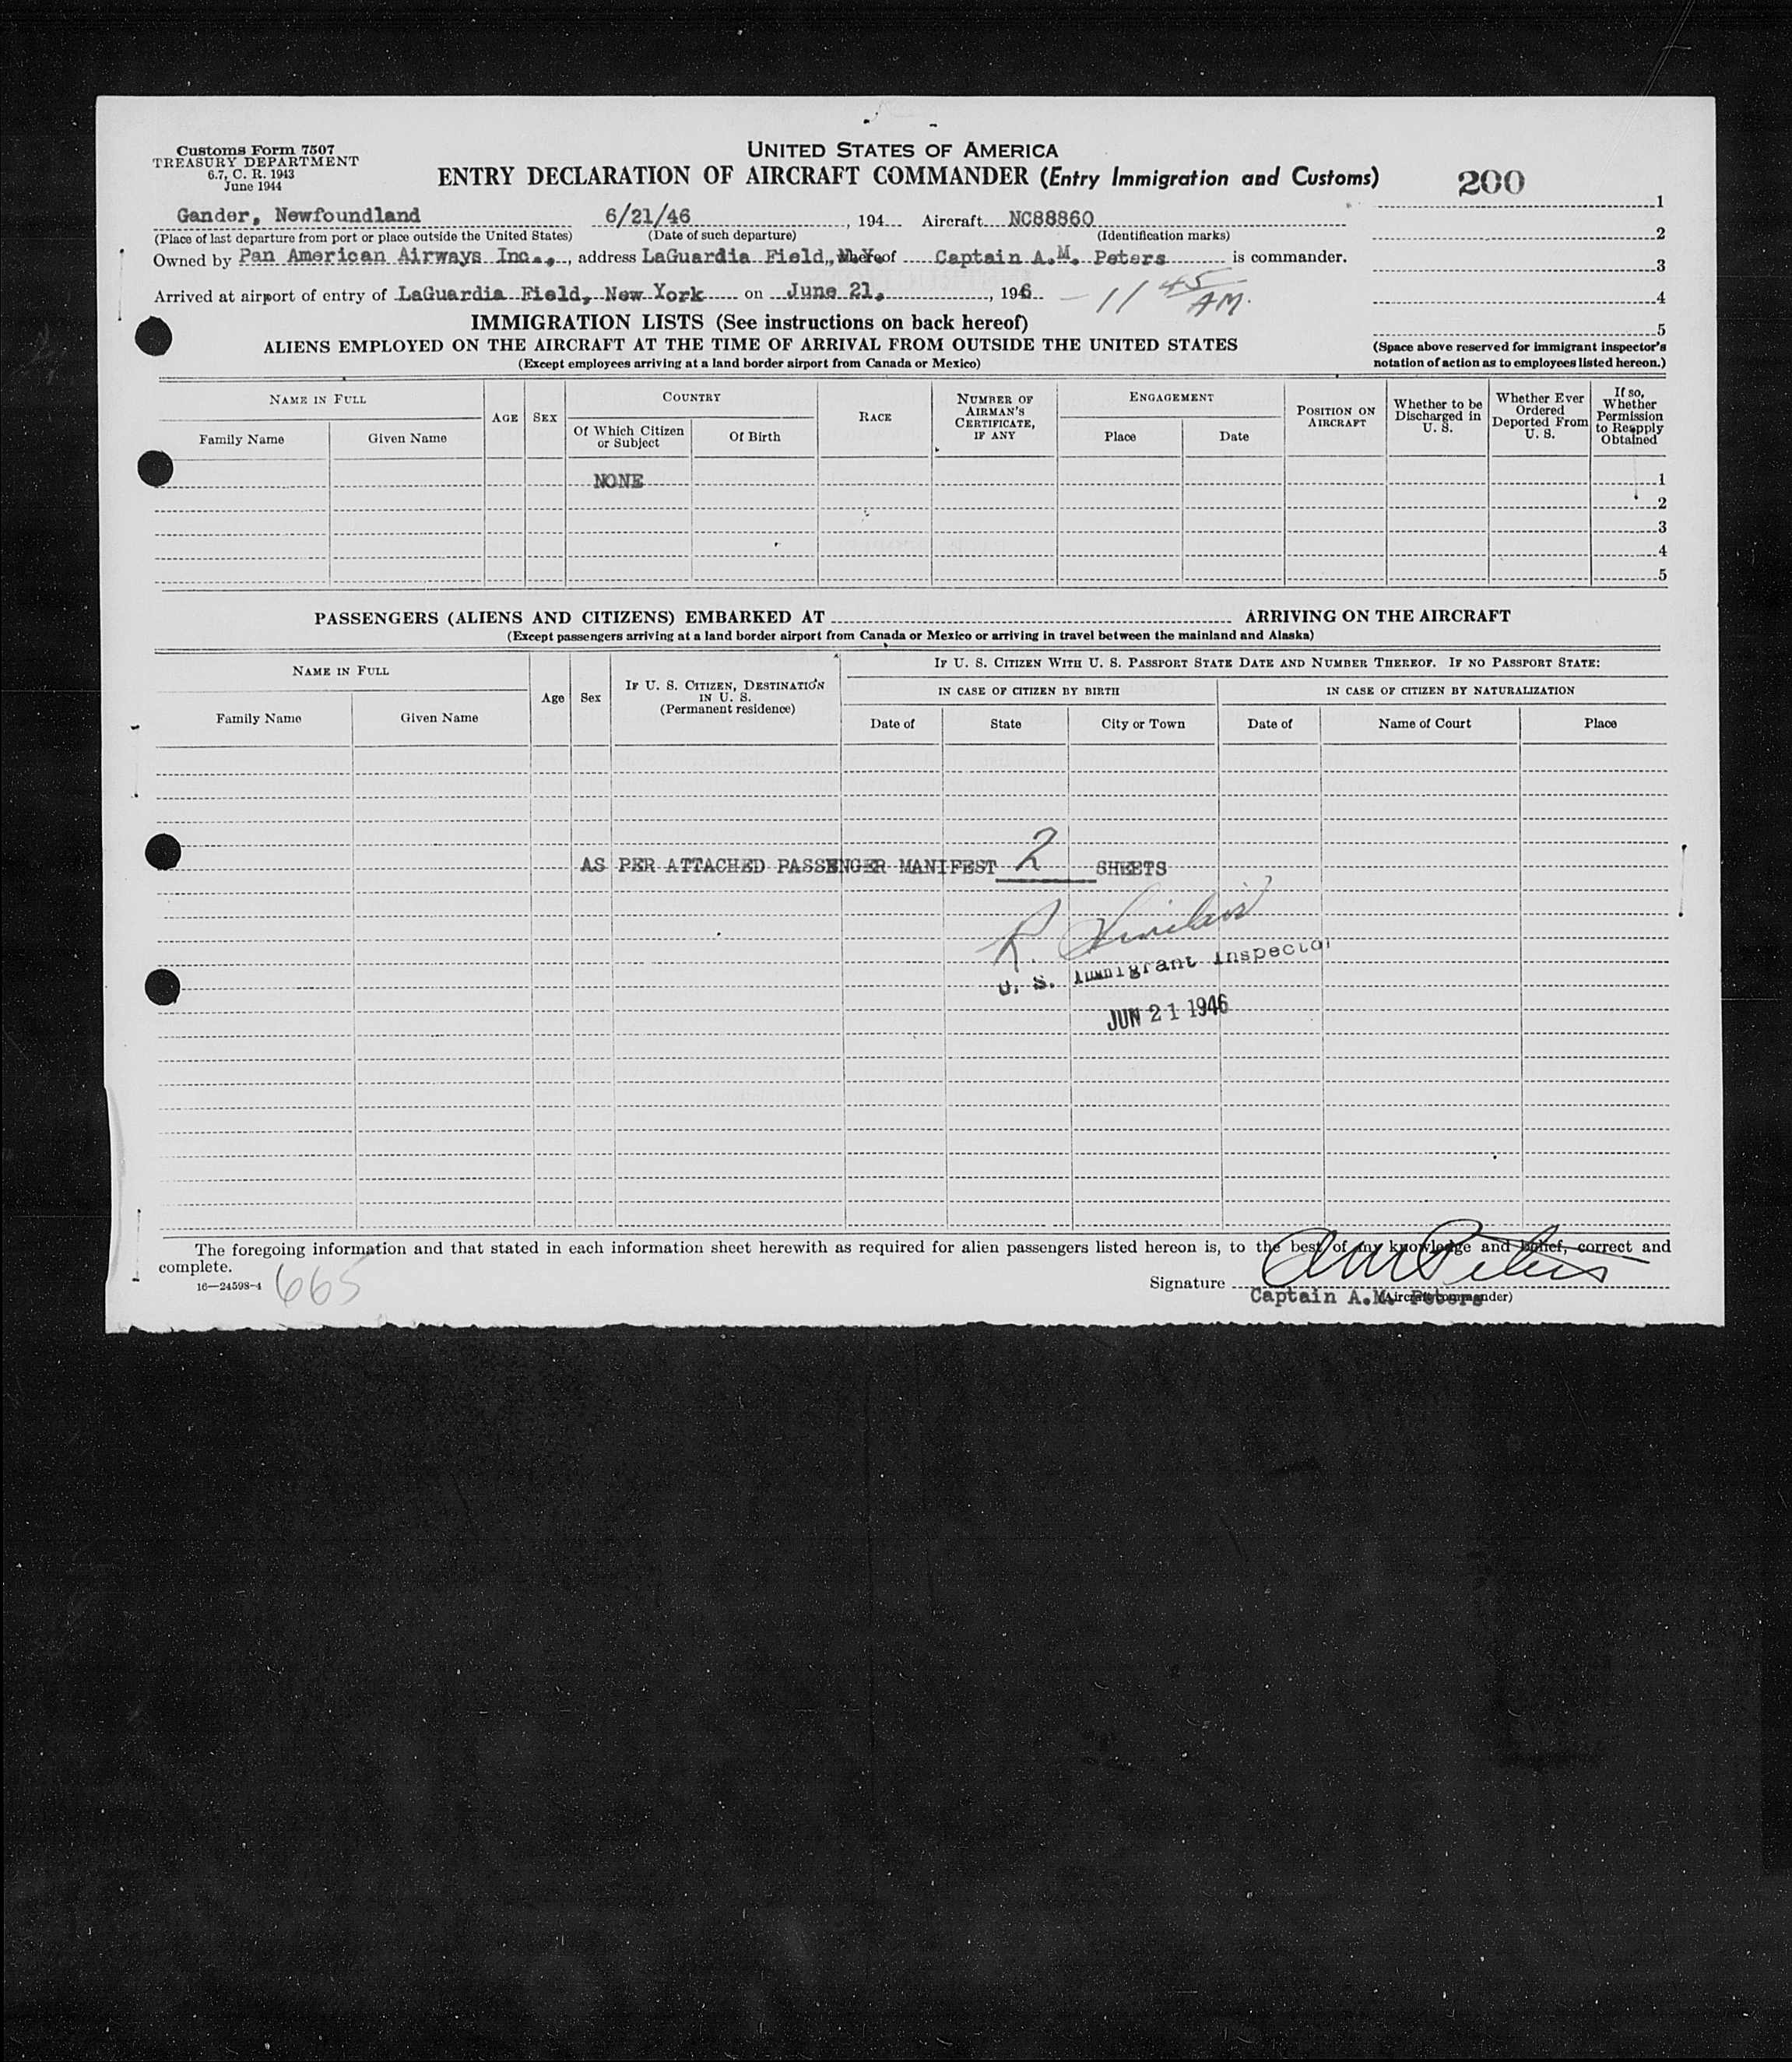 Customs Form 7507
TREASURY DEPARTMENT
6.7, C. R. 1943
June 1944
UNITED STATES OF AMERICA
ENTRY DECLARATION OF AIRCRAFT COMMANDER (Entry Immigration and Customs)
200
1
2
3
4
5
(Space above reserved for immigrant inspector's
notation of action as to employees listed hereon.)
Gander, Newfoundland 6/21/46, 194 Aircraft NC88860
(Place of last departure from port or place outside the United States) (Date of such departure) (Identification marks)
Owned by Pan American Airways Inc., address LaGuardia Field, N.Y. whereof Captain A.M. Peters is commander.
Arrived at airport of entry of LaGuardia Field, New York on June 21, 1946 - 11 45 AM.
IMMIGRATION LISTS (See instructions on back hereof)
ALIENS EMPLOYED ON THE AIRCRAFT AT THE TIME OF ARRIVAL FROM OUTSIDE THE UNITED STATES
(Except employees arriving at a land border airport from Canada or Mexico)
NAME IN FULL
Family Name
Given Name
AGE
SEX
COUNTRY
Of Which Citizen
or Subject
Of Birth
RACE
NUMBER OF
AIRMAN'S
CERTIFICATE,
IF ANY
ENGAGEMENT
Place
Date
POSITION ON
AIRCRAFT
Whether to be
Discharged in
U. S.
Whether Ever
Ordered
Deported From
U. S.
If so,
Whether
Permission
to Reapply
Obtained
NONE 1
2
3
4
5
PASSENGERS (ALIENS AND CITIZENS) EMBARKED AT ARRIVING ON THE AIRCRAFT
(Except passengers arriving at a land border airport from Canada or Mexico or arriving in travel between the mainland and Alaska)
NAME IN FULL
Family Name
Given Name
Age
Sex
IF U. S. CITIZEN, DESTINATION
IN U. S.
(Permanent residence)
IF U. S. CITIZEN WITH U. S. PASSPORT STATE DATE AND NUMBER THEREOF. IF NO PASSPORT STATE:
IN CASE OF CITIZEN BY BIRTH
IN CASE OF CITIZEN BY NATURALIZATION
Date of
State
City or Town
Date of
Name of Court
Place
AS PER ATTACHED PASSENGER MANIFEST 2 SHEETS
R. Sinclair
U. S. Immigrant Inspector
JUN 21 1946
The foregoing information and that stated in each information sheet herewith as required for alien passengers listed hereon is, to the best of my knowledge and belief, correct and
complete.
16—24598-4
665
Signature A M Peters
Captain A.M. Peters
(Aircraft commander)